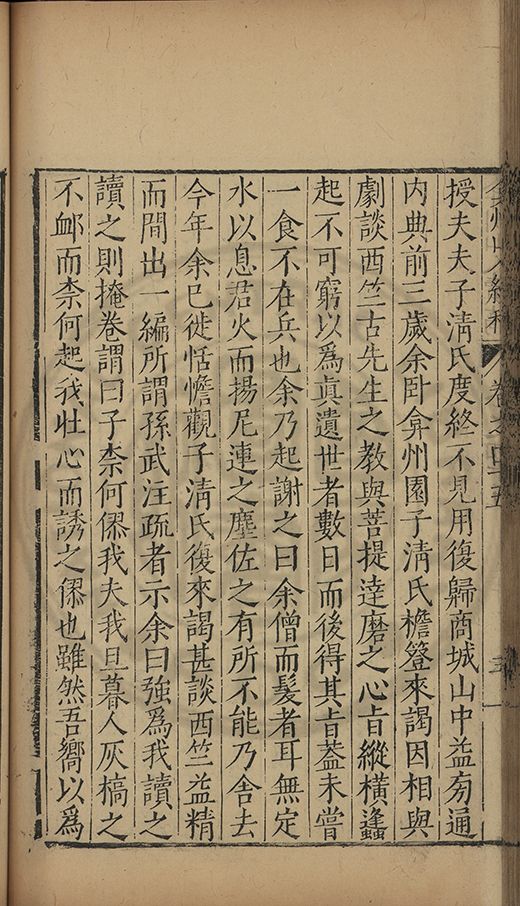 弇州山人續稿 卷之四五 五
授夫夫子清氏度終不見用復歸商城山中益旁通
內典前三歲余臥弇州園子清氏檐簦來謁因相與
劇談西竺古先生之教與菩提達磨之心旨縱橫蠭
起不可窮以為眞遺世者數日而後得其旨蓋未嘗
一食不在兵也余乃起謝之曰余僧而髮者耳無定
水以息君火而揚尼連之塵佐之有所不能乃舍去
今年余已徙恬憺觀子清氏復來謁甚談西竺益精
而間出一編所謂孫武注疏者示余曰強為我讀之
讀之則掩卷謂曰子柰何僇我夫我旦暮人灰槁之
不卹而柰何起我壯心而誘之僇也雖然吾嚮以為